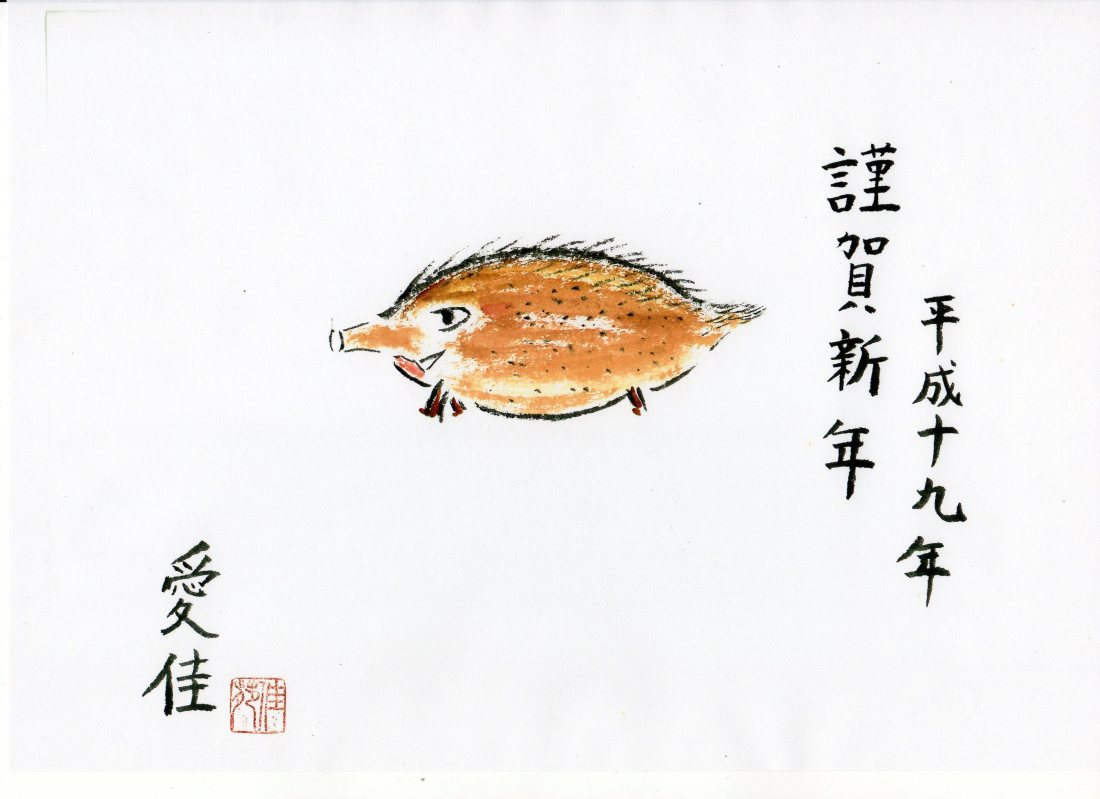 平成十九年
謹賀新年
愛佳